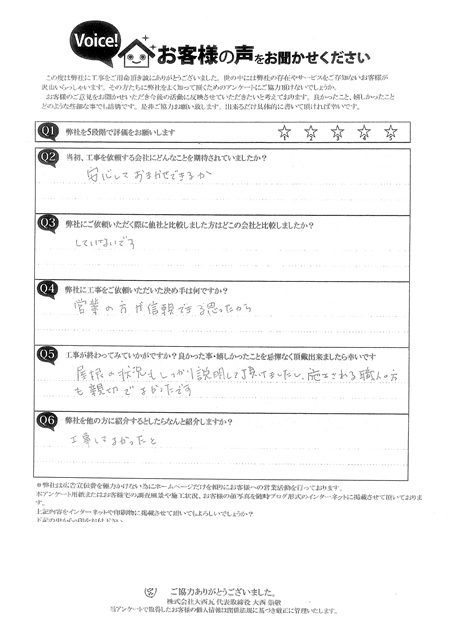 Voice!
お客様の声をお聞かせください
この度は弊社に工事をご用命頂き誠にありがとうございました。世の中には弊社の存在やサービスをご存知ないお客様が
沢山いらっしゃいます。その方たちに弊社をよく知って頂くためのアンケートにご協力頂けないでしょうか。
お客様のご意見をお聞かせいただき今後の活動に反映させていただきたいと考えております。良かったこと、嬉しかったこと
どのような些細な事でも結構です。是非ご協力お願い致します。出来るだけ具体的に書いて頂ければ幸いです。
Q1 弊社を5段階で評価をお願いします
1 2 3 4 5
Q2 当初、工事を依頼する会社にどんなことを期待されていましたか?
安心しておまかせできるか
Q3 弊社にご依頼いただく際に他社と比較しました方はどこの会社と比較しましたか?
していないです
Q4 弊社に工事をご依頼いただいた決め手は何ですか?
営業の方が信頼できる思ったから
Q5 工事が終わってみていかがですか?良かった事・嬉しかったことを忌憚なく頂戴出来ましたら幸いです
屋根の状況もしっかり説明して頂けましたし、施工される職人の方
も親切でよかったです
Q6 弊社を他の方に紹介するとしたらなんと紹介しますか?
工事してよかったと
※弊社は広告宣伝費を極力かけない為にホームページだけを頼りにお客様への営業活動を行っております。
本アンケート用紙またはお客様宅の調査風景や施工状況、お客様の顔写真を随時ブログ形式のインターネットに掲載させて頂いておりま
す。
上記内容をインターネットや印刷物に掲載させて頂いてもよろしいでしょうか?
ご協力ありがとうございました。
株式会社大西瓦 代表取締役 大西
当アンケートで取得したお客様の個人情報は関係法規に基づき厳正に管理いたします。